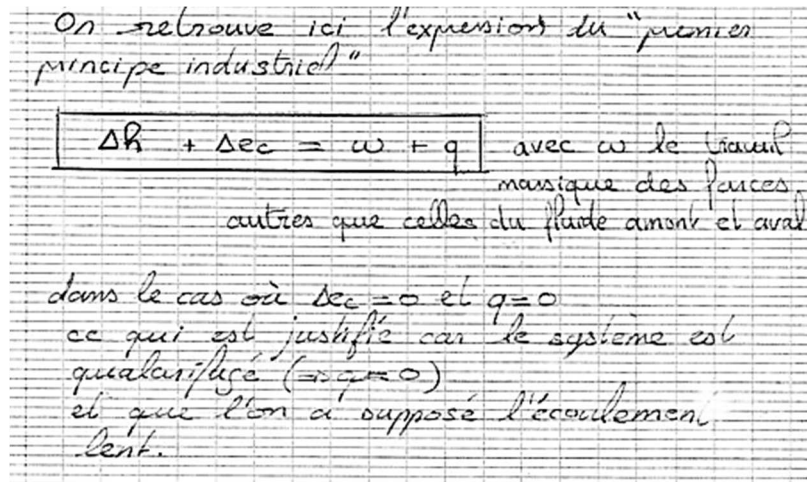 On retrouve ici l'expression du "premier
principe industriel"
Δh + Δec = w + q avec w le travail
massique des forces,
autres que celles du fluide amont et aval
dans le cas où Δec = 0 et q = 0
ce qui est justifié car le système est
qualorifugé (⇒ q = 0)
et que l'on a supposé l'écoulement
lent.